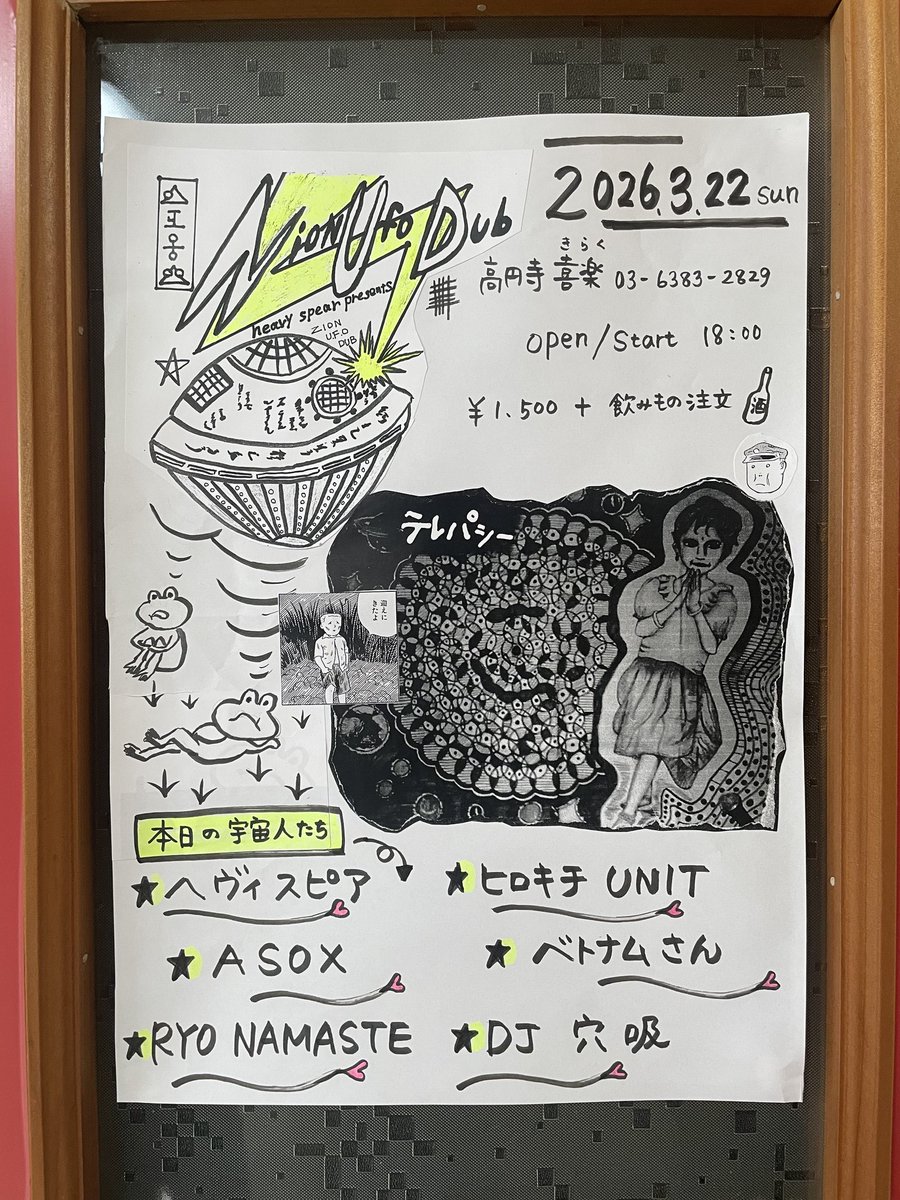 Zion Ufo Dub
heavy spear presents
ZION
U.F.O
DUB
2026.3.22 sun
きらく
高円寺 喜楽 03-6383-2829
open/start 18:00
¥1.500 + 飲みもの注文
酒
テレパシー
迎えに
きたよ
本日の宇宙人たち
★ヘヴィスピア
★ヒロキチ UNIT
★ASOX
★ベトナムさん
★RYO NAMASTE
★DJ 穴吸